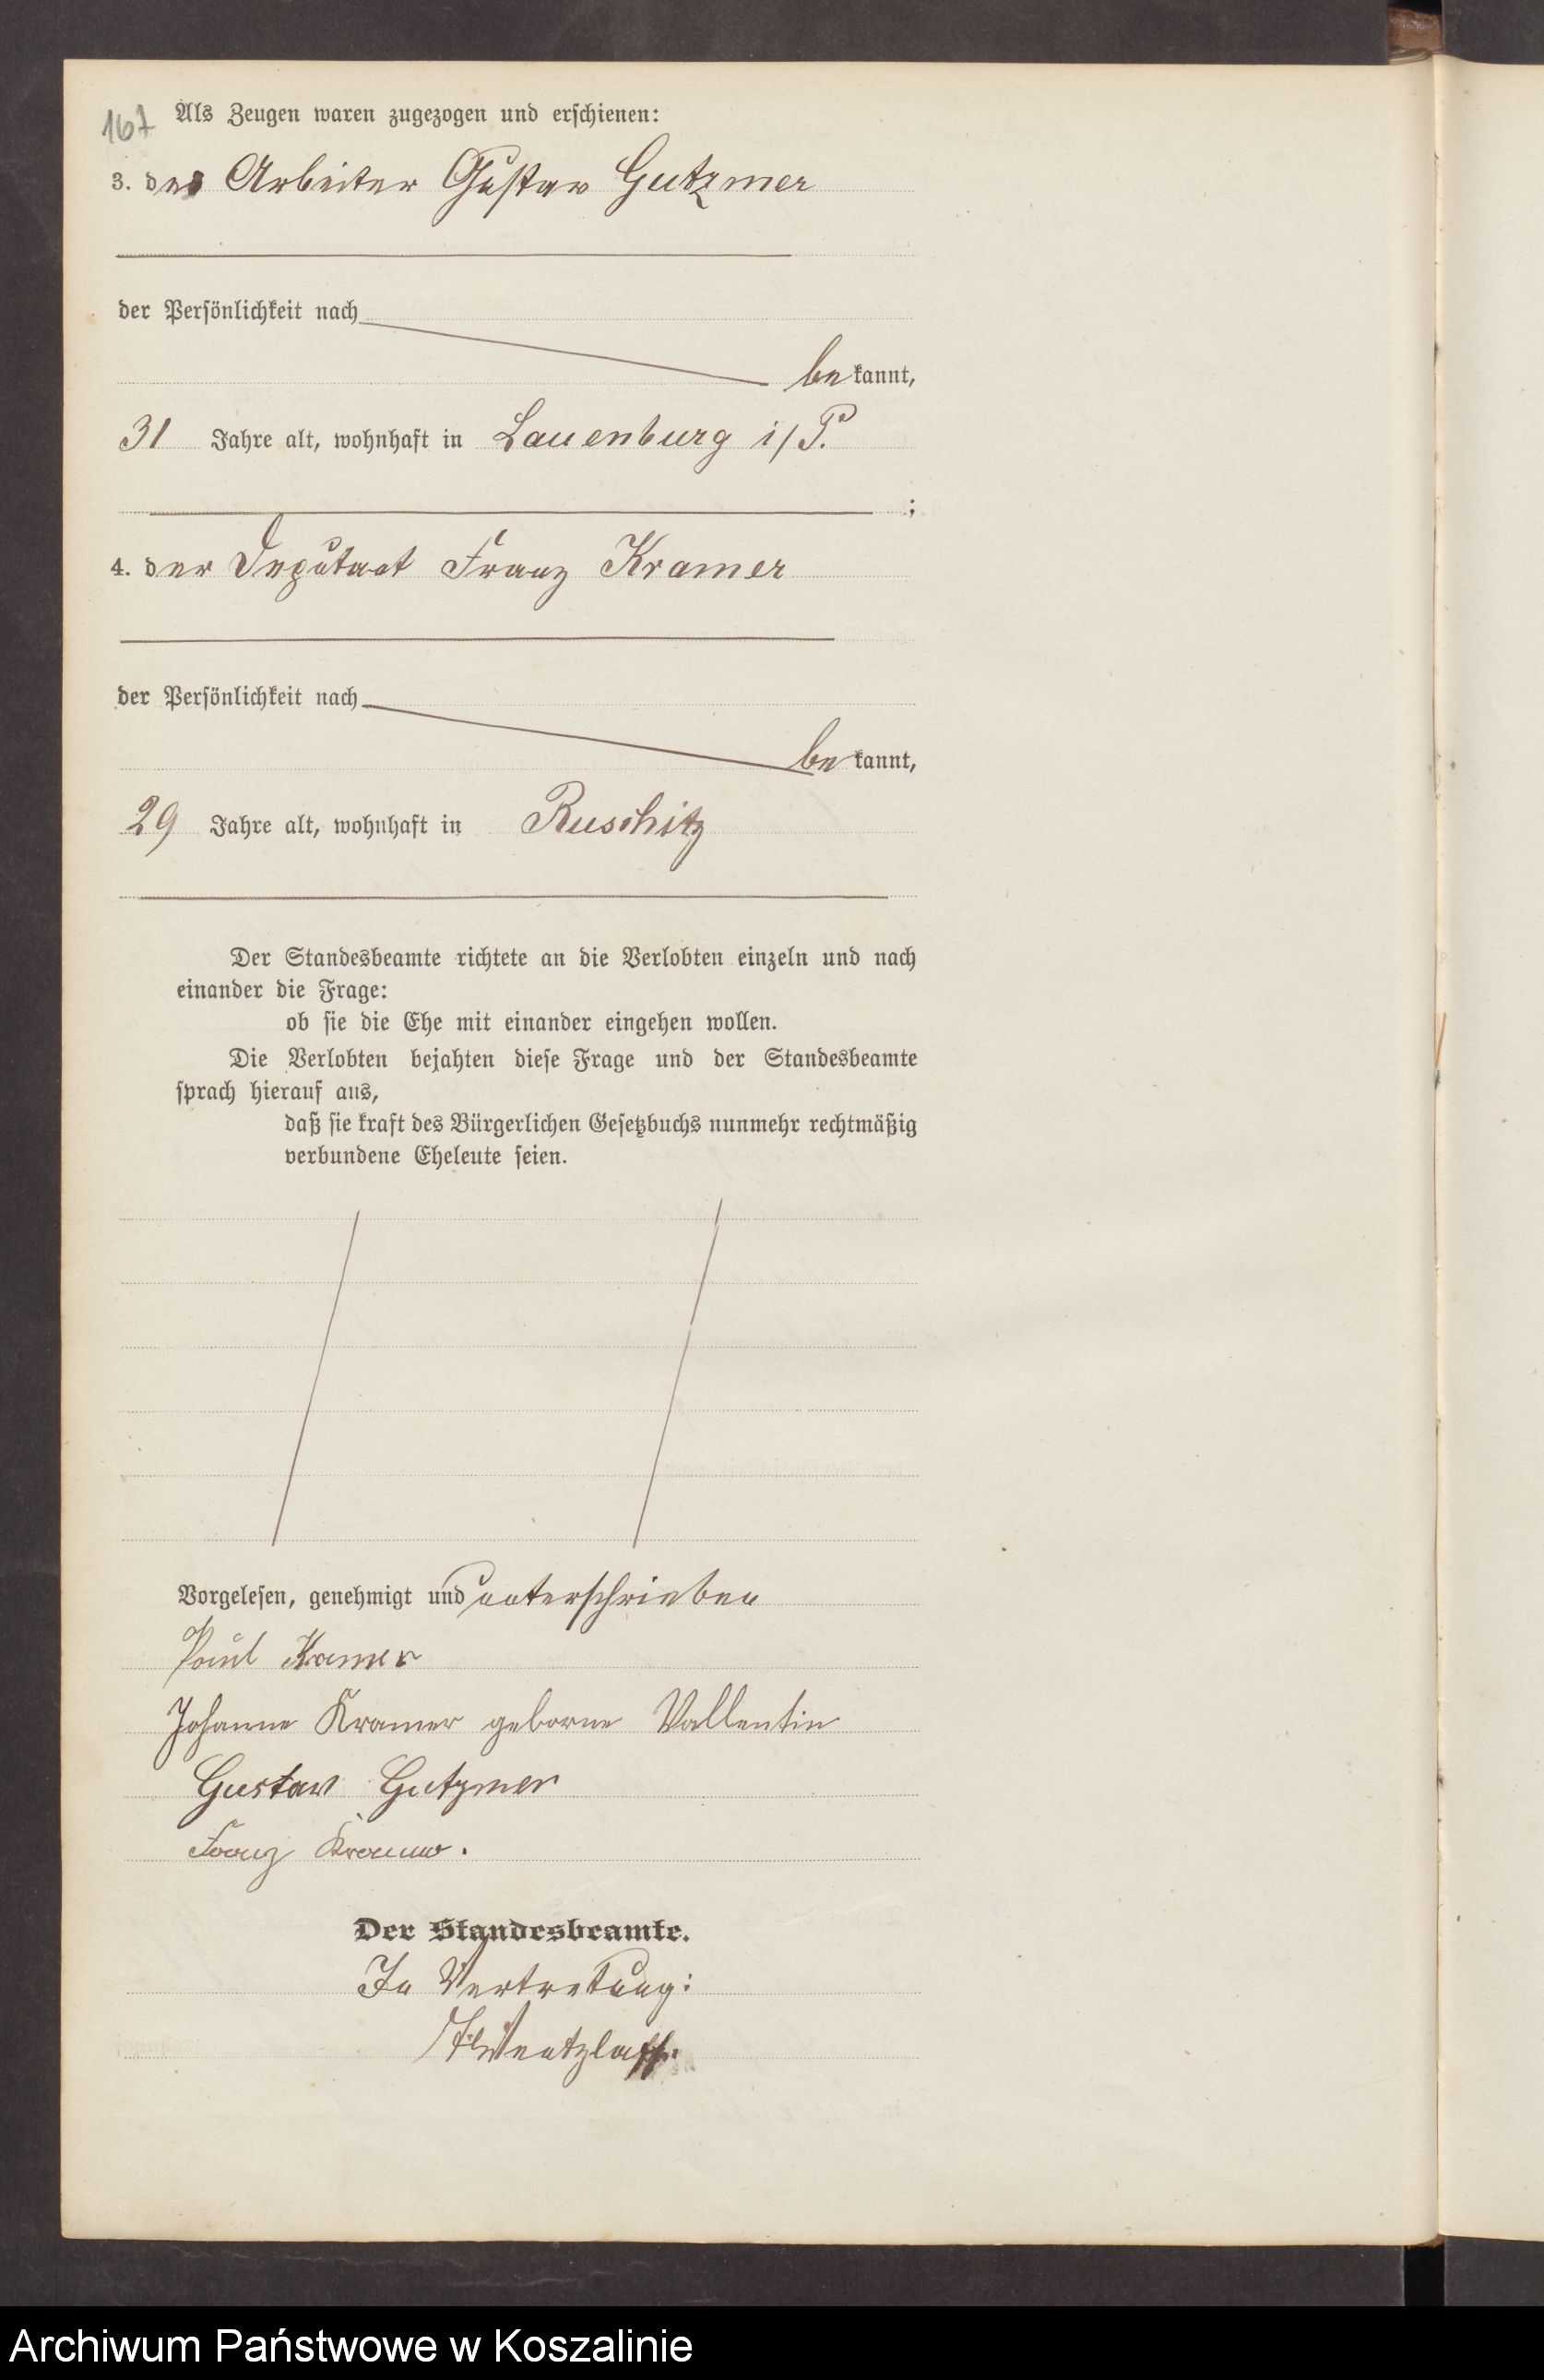 167 Als Zeugen waren zugezogen und erschienen:
3. der Arbeiter Gustav Gutzmer
der Persönlichkeit nach
bekannt,
31 Jahre alt, wohnhaft in Lauenburg i/P.
;
4. der Deputant Franz Kramer
der Persönlichkeit nach
bekannt,
29 Jahre alt, wohnhaft in Ruschitz
Der Standesbeamte richtete an die Verlobten einzeln und nach
einander die Frage:
ob sie die Ehe mit einander eingehen wollen.
Die Verlobten bejahten diese Frage und der Standesbeamte
sprach hierauf aus,
daß sie kraft des Bürgerlichen Gesetzbuchs nunmehr rechtmäßig
verbundene Eheleute seien.
Vorgelesen, genehmigt und unterschrieben
Paul Kramer
Johanne Kramer geborne Vallentin
Gustav Gutzmer
Franz Kramer.
Der Standesbeamte.
In Vertretung:
Wentzlaff.
Archiwum Państwowe w Koszalinie